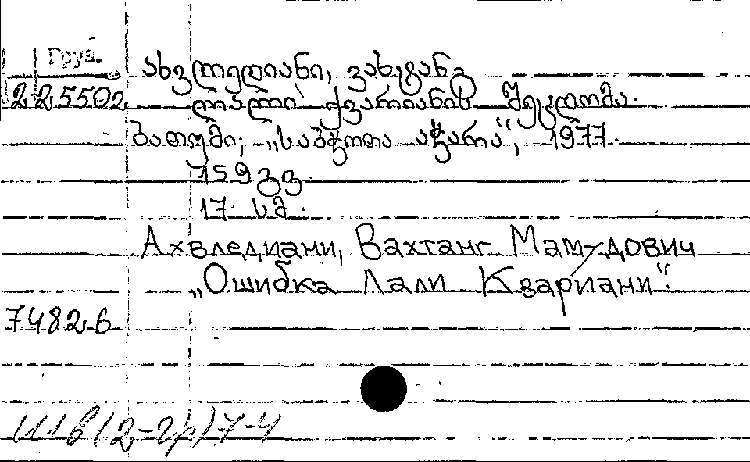 Груз.
ახვლედიანი, ვახტანგ
225502 ლალი ქვარიანის შეცდომა.
ბათუმი, „საბჭოთა აჭარა“, 1977.
159 გვ.
17 სმ.
Ахвледиани, Вахтанг Мам-дович
„Ошибка Лали Квариани“.
7482-б